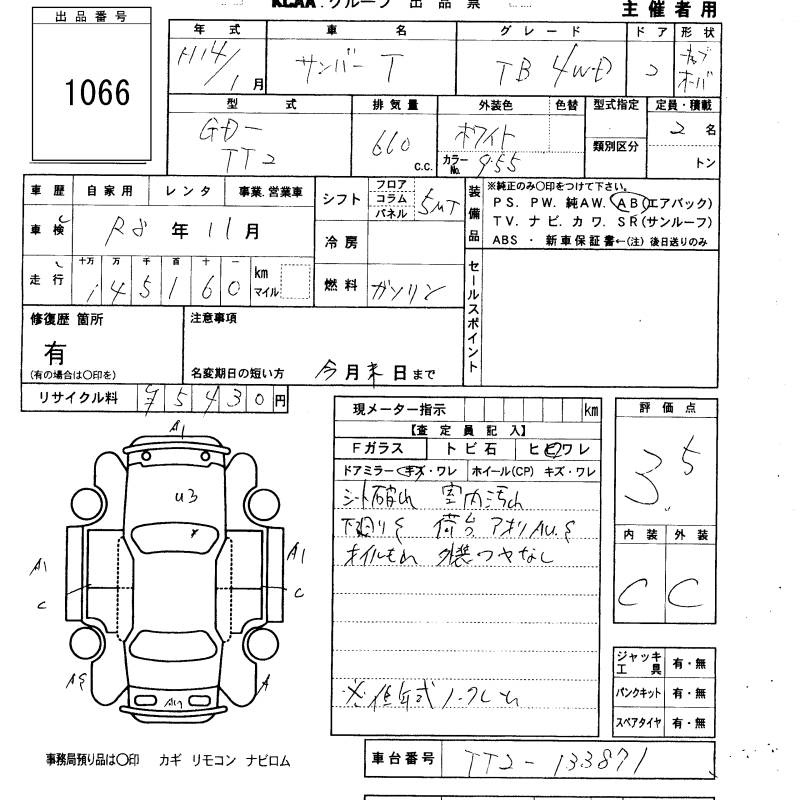 KCAA.グループ 出品票
主催者用
出品番号
1066
年式 車名 グレード ドア 形状
H14/1月 サンバーT TB 4WD 2
型式 排気量 外装色 色替 型式指定 定員・積載
GD-
TT2
660 c.c.
ホワイト
カラーNo. 955
類別区分
2名
トン
車歴 自家用 レンタ 事業.営業車
車検 R8年11月
走行 十万 万 千 百 十 一
145160 km マイル
シフト フロア コラム パネル 5MT
冷房
燃料 ガソリン
装備品
※純正のみ〇印をつけて下さい。
PS. PW. 純AW. AB(エアバック)
TV. ナビ. カワ. SR(サンルーフ)
ABS ・ 新車保証書←(注) 後日送りのみ
セールスポイント
修復歴 箇所
有
(有の場合は〇印を)
注意事項
名変期日の短い方 今月末日まで
リサイクル料 ¥5430円
現メーター指示 km
【査定員記入】
Fガラス トビ石 ヒビワレ
ドアミラー キズ・ワレ ホイール(CP) キズ・ワレ
シート破れ 室内汚れ
下廻りS 荷台アオリAU.S
オイルもれ 外装ツヤなし
※低年式ノークレム
評価点
3.5
内装 外装
C C
ジャッキ工具 有・無
パンクキット 有・無
スペアタイヤ 有・無
A1
U3
A1
C
A1
C
AS
A
事務局預り品は〇印 カギ リモコン ナビロム
車台番号 TT2-133871